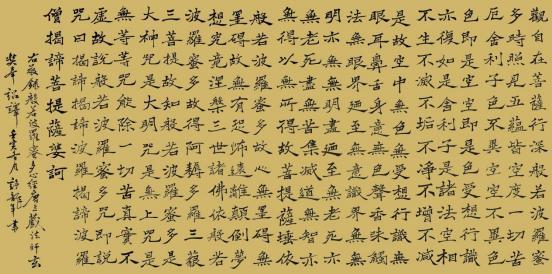 觀自在菩薩行深般若波羅蜜
多時照見五蘊皆空度一切苦
厄舍利子色不異空空不異色
色即是空空即是色受想行識
亦復如是舍利子是諸法空相
不生不滅不垢不淨不增不減
是故空中無色無受想行識無
眼耳鼻舌身意無色聲香味觸
法無眼界乃至無意識界無無
明亦無無明盡乃至無老死亦
無老死盡無苦集滅道無智亦
無得以無所得故菩提薩埵依
般若波羅蜜多故心無罣礙無
罣礙故無有恐怖遠離顛倒夢
想究竟涅槃三世諸佛依般若
波羅蜜多故得阿耨多羅三藐
三菩提故知般若波羅蜜多是
大神咒是大明咒是無上咒是
無等等咒能除一切苦真實不
虛故說般若波羅蜜多咒即說
咒曰揭諦揭諦波羅揭諦波羅
僧揭諦菩提薩婆訶
右敬錄般若波羅蜜多心經唐三藏法師玄
奘奉詔譯 月 書